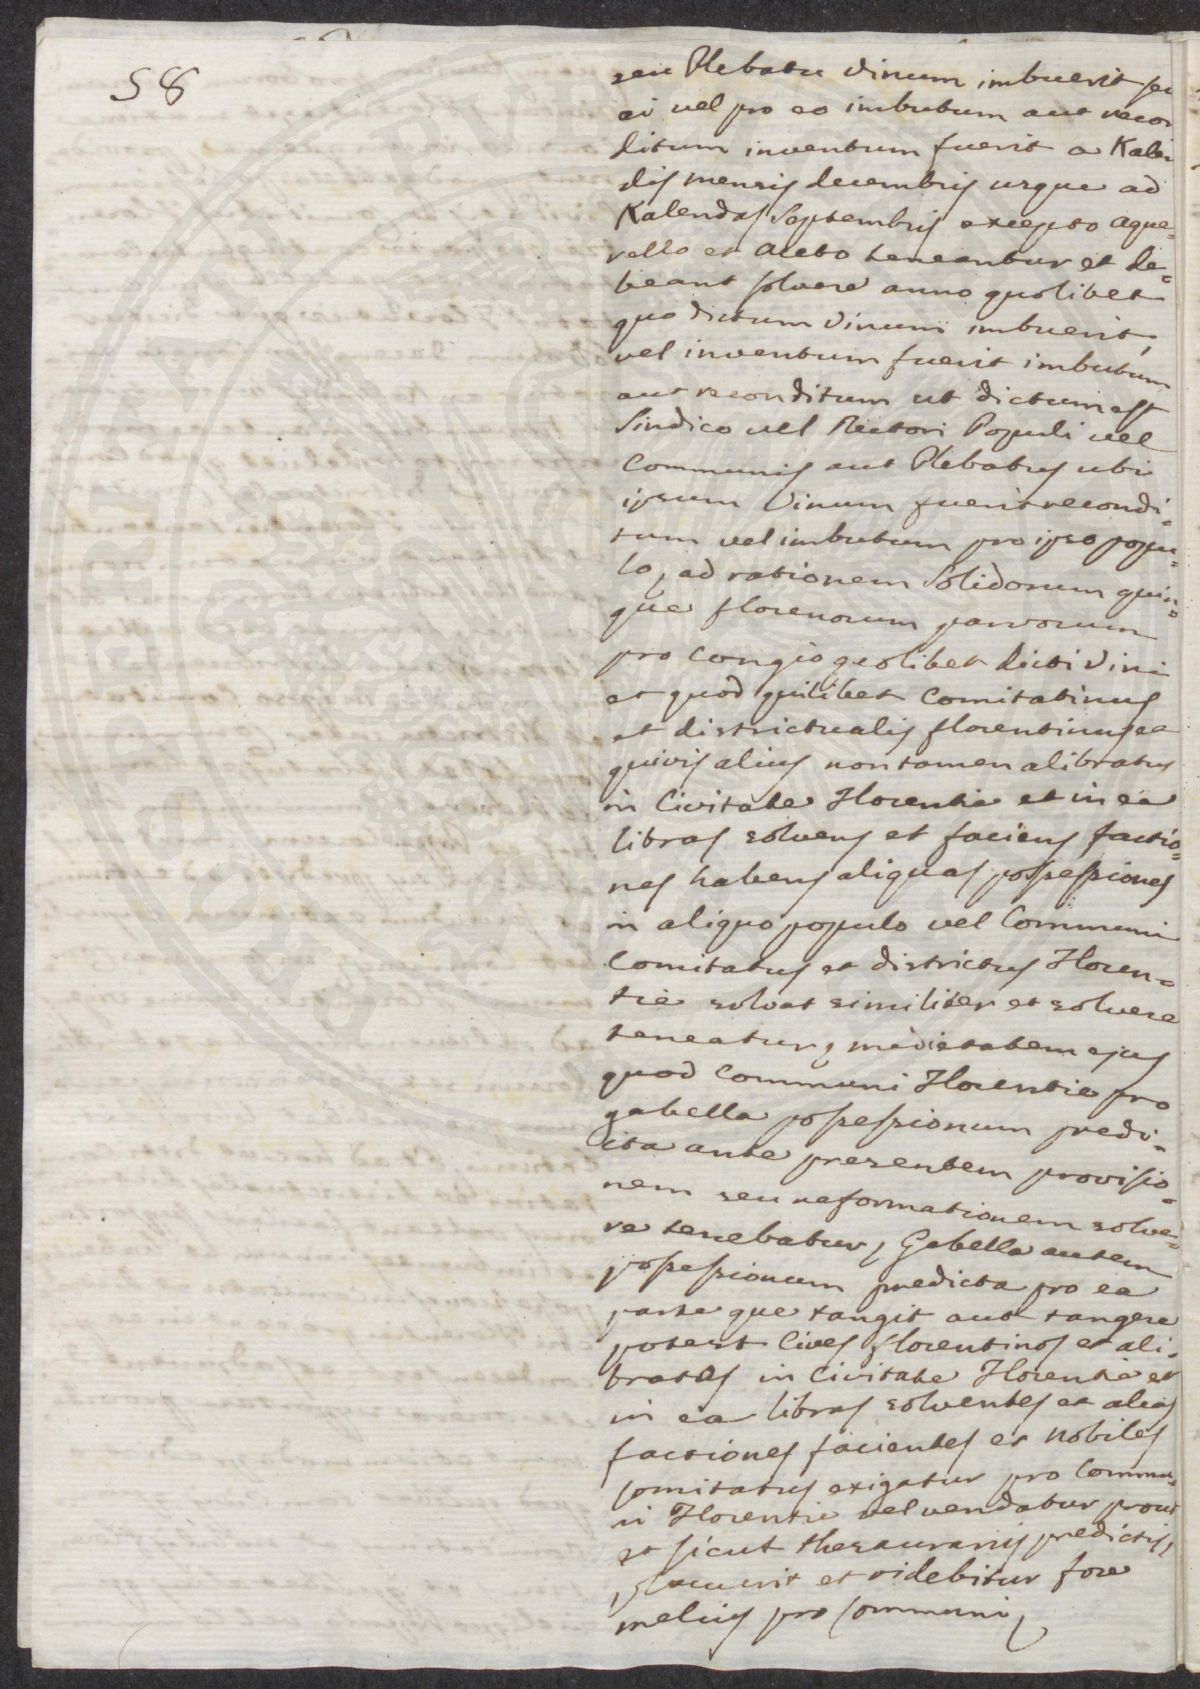 58
seu Plebatu Vinum imbuerit seu
ei vel pro eo imbutum aut recon
ditum inventum fuerit a Kalen
dis mensis decembris usque ad
Kalendas Septembris excepto aque=
rello et Aceto teneantur et de=
beant solvere anno quolibet
quo dictum Vinum imbuerit,
vel inventum fuerit imbutum
aut reconditum ut dictum est
Sindico vel Rectori Populi vel
Communis aut Plebatus ubi
ipsum Vinum fuerit recondi=
tum vel imbutum pro ipso popu=
lo, ad rationem Solidorum quin=
que florenorum parvorum
pro Congio quolibet dicti Vini
et quod quilibet Comitatinus
et districtualis florentinus et
quivis alius non tamen alibratus
in Civitate Florentie et in ea
libras solvens et faciens factio=
nes habens aliquas possessiones
in aliquo populo vel Communi
Comitatus et districtus Floren=
tie solvat similiter et solvere
teneatur, medietatem ejus
quod Communi Florentie pro
gabella possessionum predi=
cta ante presentem provisio=
nem seu reformationem solve=
re tenebatur, Gabella autem
possessionum predicta pro ea
parte que tangit aut tangere
potest Cives florentinos et ali=
bratos in Civitate Florentie et
in ea libras solventes et alias
factiones facientes et Nobiles
Comitatus exigatur pro Commu=
ni Florentie vel vendatur prout
et sicut thesaurariis predictis,
placuerit et videbitur fore
melius pro Communi,